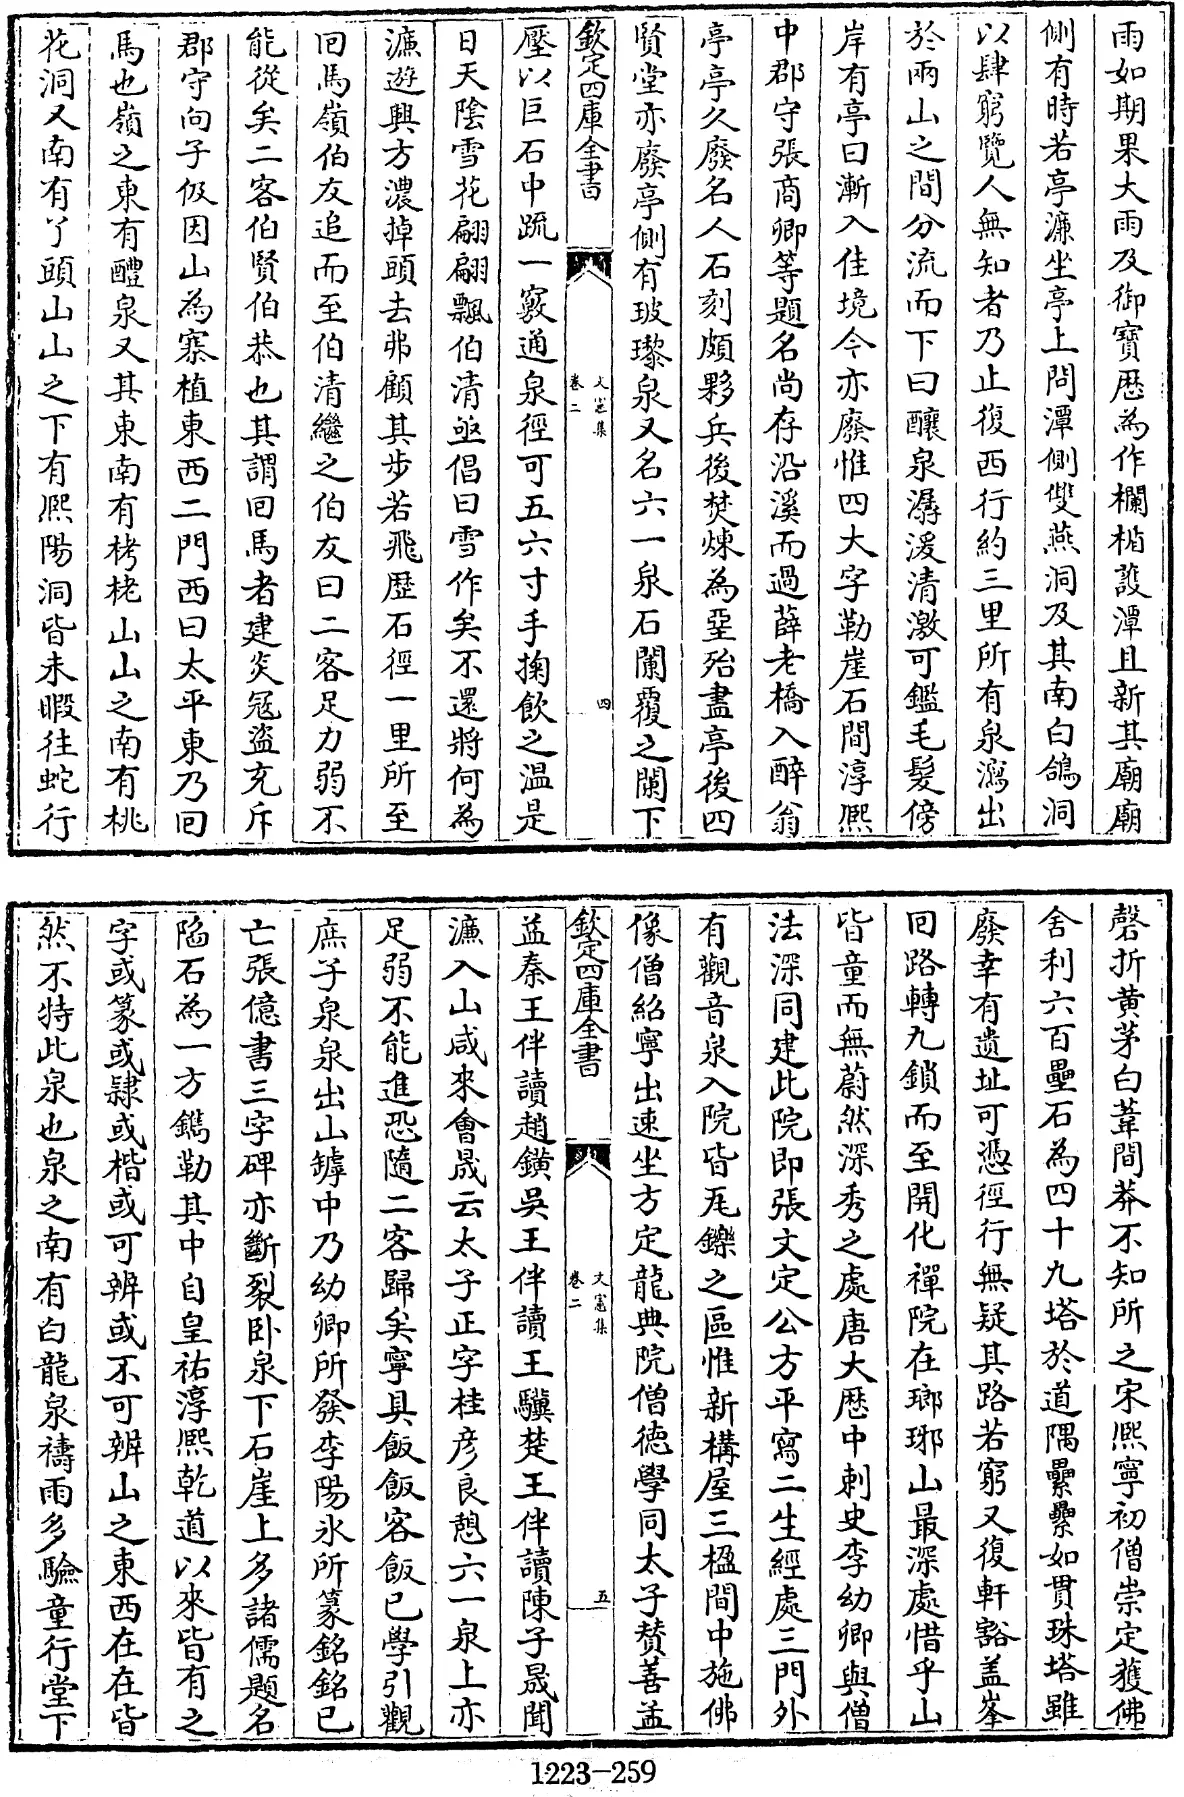 雨如期果大雨及御寶歴為作欄楯䕶潭且新其廟廟
側有時若亭濂坐亭上問潭側雙燕洞及其南白鴿洞
以肆窮覽人無知者乃止復西行約三里所有泉瀉出
於兩山之間分流而下曰釀泉潺湲清激可鑑毛髮傍
岸有亭曰漸入佳境今亦廢惟四大字勒崖石間淳熙
中郡守張商卿等題名尚存沿溪而過薛老橋入醉翁
亭亭久廢名人石刻頗夥兵後焚煉為堊殆盡亭後四
賢堂亦廢亭側有玻瓈泉又名六一泉石闌覆之闌下
欽定四庫全書
文憲集
卷二
四
壓以巨石中䟽一竅通泉徑可五六寸手掬飲之温是
日天陰雪花翩翩飄伯清亟倡曰雪作矣不還將何為
濂遊興方濃掉頭去弗顧其步若飛歴石徑一里所至
回馬嶺伯友追而至伯清繼之伯友曰二客足力弱不
能從矣二客伯賢伯恭也其謂回馬者建炎冦盗充斥
郡守向子伋因山為寨植東西二門西曰太平東乃回
馬也嶺之東有醴泉又其東南有栲栳山山之南有桃
花洞又南有丫頭山山之下有熙陽洞皆未暇往蛇行
磬折黄茅白葦間莽不知所之宋熙寧初僧崇定獲佛
舍利六百壘石為四十九塔於道隅纍纍如貫珠塔雖
廢幸有遺址可憑徑行無疑其路若窮又復軒豁盖峯
回路轉九鎖而至開化禪院在瑯琊山最深處惜乎山
皆童而無蔚然深秀之處唐大歴中刺史李幼卿與僧
法深同建此院即張文定公方平寫二生經處三門外
有觀音泉入院皆瓦鑠之區惟新構屋三楹間中施佛
像僧紹寧出速坐方定龍興院僧徳學同太子賛善孟
欽定四庫全書
文憲集
卷二
五
益秦王伴讀趙鐄吳王伴讀王驥楚王伴讀陳子晟聞
濂入山咸來會晟云太子正字桂彦良憩六一泉上亦
足弱不能進恐隨二客歸矣寧具飯飯客飯已學引觀
庶子泉泉出山罅中乃幼卿所發李陽氷所篆銘銘已
亡張億書三字碑亦斷裂卧泉下石崖上多諸儒題名
陷石為一方鐫勒其中自皇祐淳熙乾道以來皆有之
字或篆或隸或楷或可辨或不可辨山之東西在在皆
然不特此泉也泉之南有白龍泉禱雨多驗童行堂下
1223-259